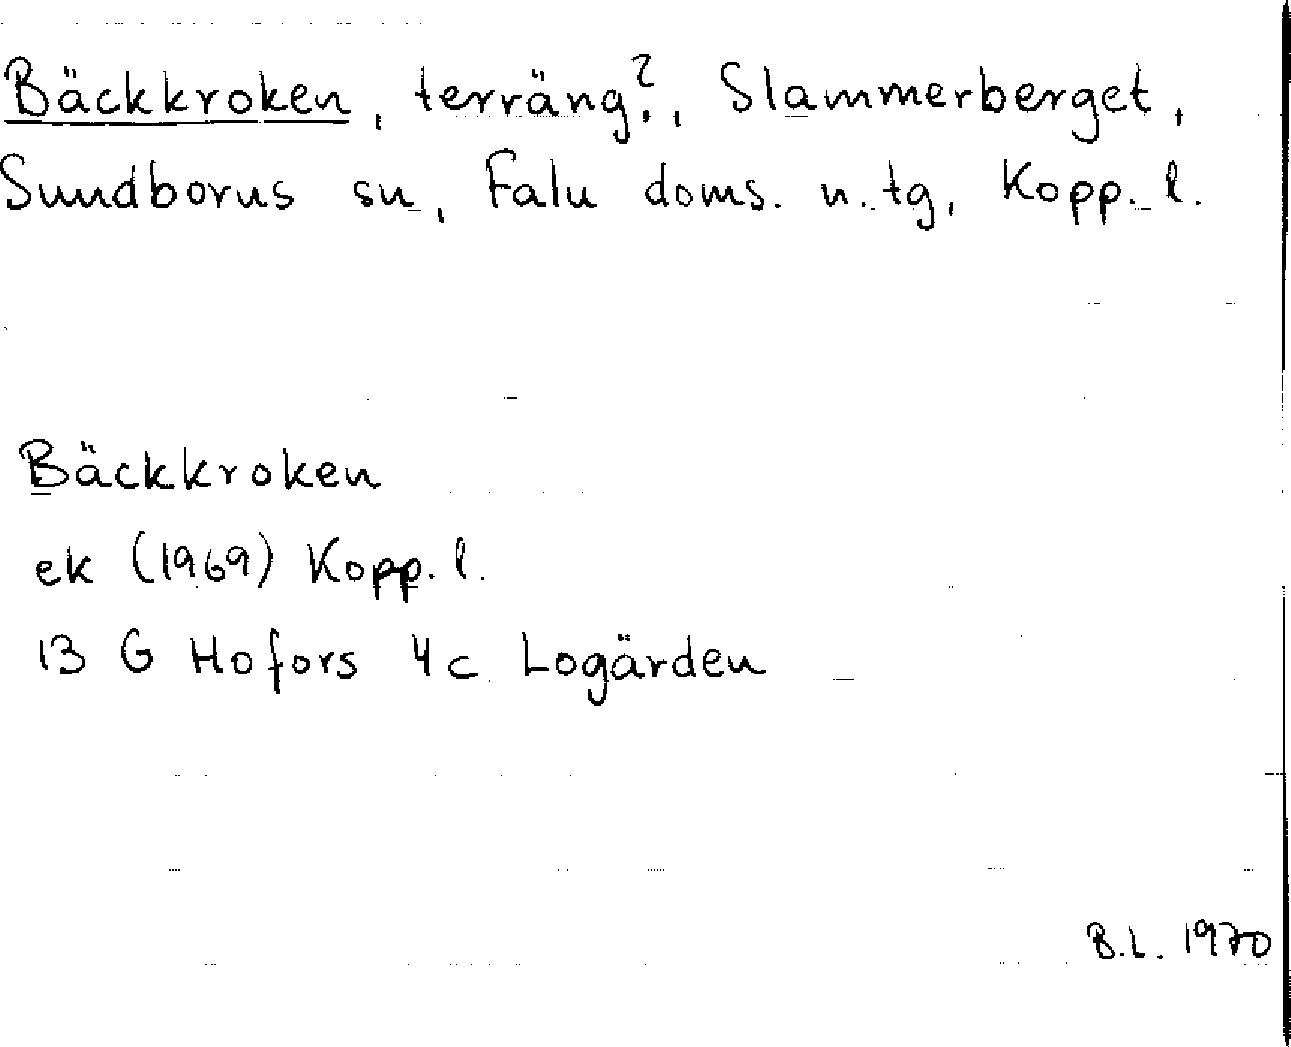 Bäckkroken, terräng?, Slammerberget,
Sundborns sn, Falu doms. n. tg, Kopp. l.
Bäckkroken
ek (1969) Kopp. l.
13 G Hofors 4c Logärden
B.L. 1970